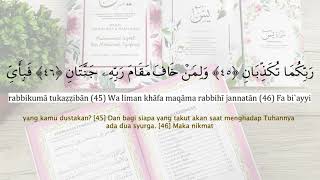 رَبِّكُمَا تُكَذِّبَانِ ﴿٤٥﴾ وَلِمَنْ خَافَ مَقَامَ رَبِّهٖ جَنَّتَانِ ﴿٤٦﴾ فَبِأَيِّ
rabbikumā tukażżibān (45) Wa liman khāfa maqāma rabbihī jannatān (46) Fa bi`ayyi
yang kamu dustakan? [45] Dan bagi siapa yang takut akan saat menghadap Tuhannya
ada dua syurga. [46] Maka nikmat